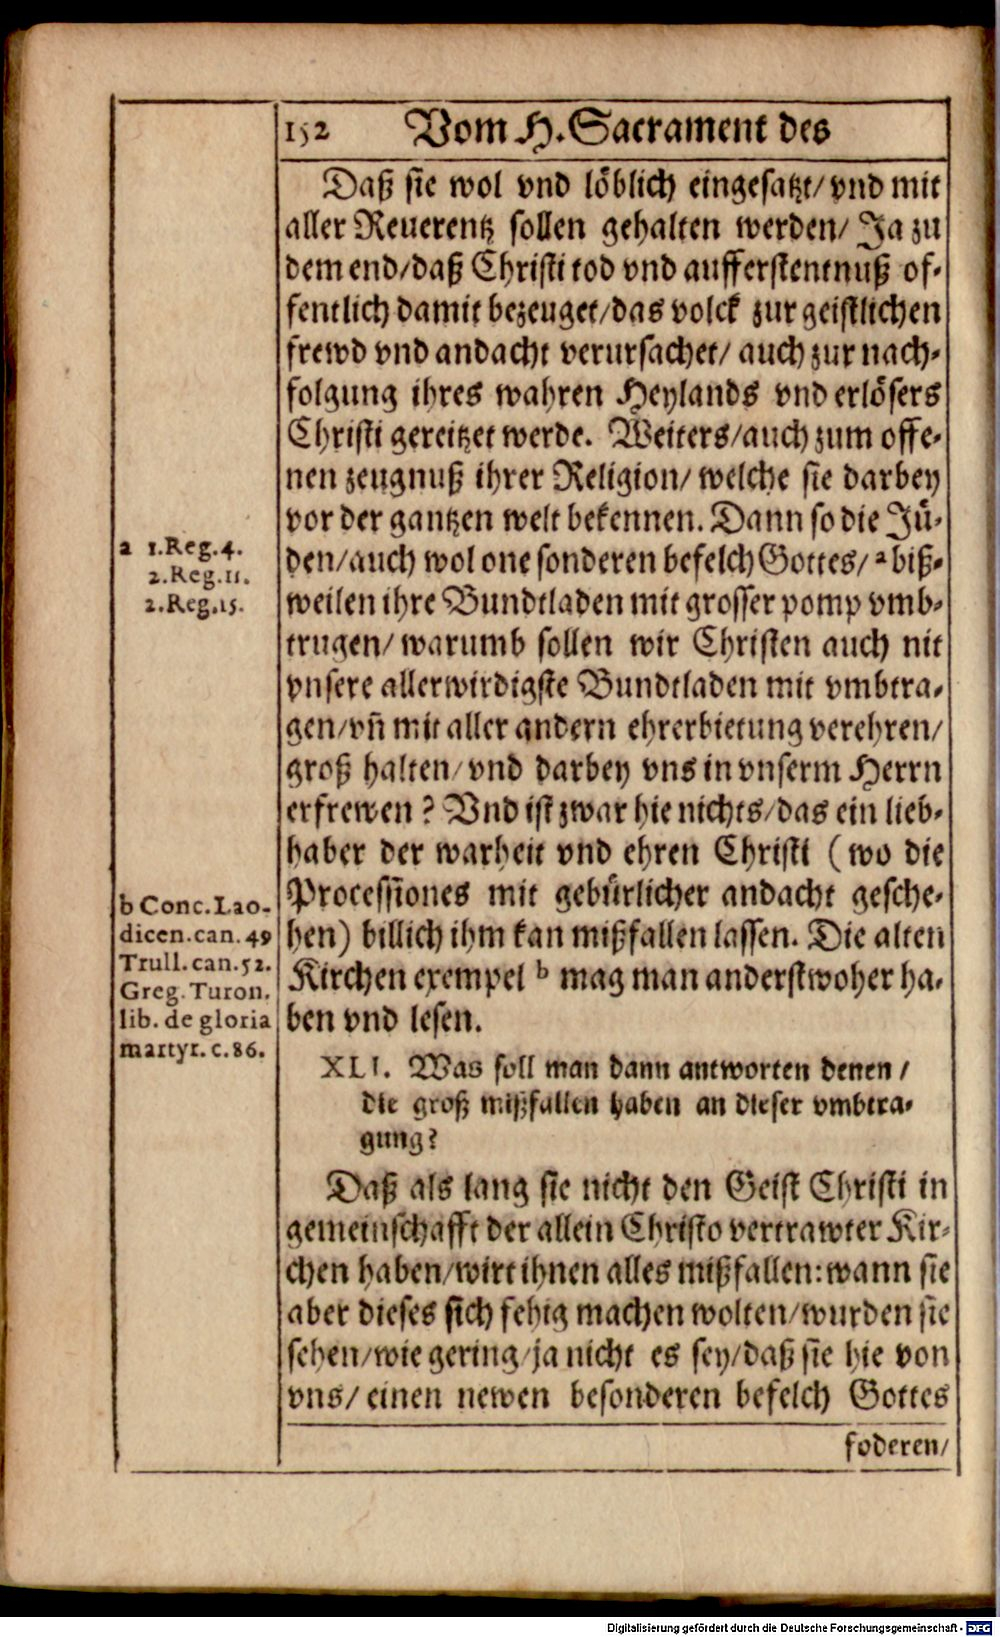 152 Vom H. Sacrament des
Daß sie wol vnd löblich eingesatzt/ vnd mit
aller Reuerentz sollen gehalten werden/ Ja zu
dem end/ daß Christi tod vnd aufferstentnuß of-
fentlich damit bezeuget/ das volck zur geistlichen
frewd vnd andacht verursachet/ auch zur nach-
folgung ihres wahren Heylands vnd erlösers
Christi gereitzet werde. Weiters/ auch zum offe-
nen zeugnuß ihrer Religion/ welche sie darbey
vor der gantzen welt bekennen. Dann so die Jü-
den/ auch wol one sonderen befelch Gottes/ a biß-
weilen ihre Bundtladen mit grosser pomp vmb-
trugen/ warumb sollen wir Christen auch nit
vnsere allerwirdigste Bundtladen mit vmbtra-
gen/ vñ mit aller andern ehrerbietung verehren/
groß halten/ vnd darbey vns in vnserm Herrn
erfrewen? Vnd ist zwar hie nichts/ das ein lieb-
haber der warheit vnd ehren Christi (wo die
Processiones mit gebürlicher andacht gesche-
hen) billich ihm kan mißfallen lassen. Die alten
Kirchen exempel b mag man anderstwoher ha-
ben vnd lesen.
a 1.Reg.4.
2.Reg.11.
2.Reg.15.
b Conc. Lao-
dicen. can. 49
Trull. can. 52.
Greg. Turon.
lib. de gloria
martyr. c. 86.
XLI. Was soll man dann antworten denen/
die groß mißfallen haben an dieser vmbtra-
gung?
Daß als lang sie nicht den Geist Christi in
gemeinschafft der allein Christo vertrawter Kir-
chen haben/ wirt ihnen alles mißfallen: wann sie
aber dieses sich fehig machen wolten/ wurden sie
sehen/ wie gering/ ja nicht es sey/ daß sie hie von
vns/ einen newen besonderen befelch Gottes
foderen/
Digitalisierung gefördert durch die Deutsche Forschungsgemeinschaft - DFG